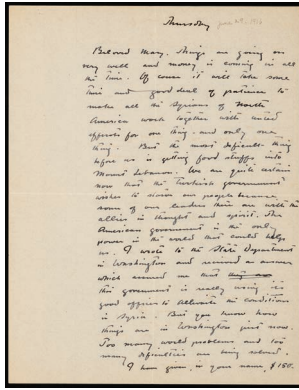 Thursday June 29, 1916
Beloved Mary. Things are going on
very well and money is coming in all
the time. Of course it will take some
time and good deal of patience to
make all the Syrians of North
America work together with united
efforts for one thing and only one
thing. But the most difficult thing
before us is getting food stuffs into
Mount Lebanon. We are quite certain
now that the Turkish government
wishes to starve our people because
some of our leaders there are with the
allies in thought and spirit. The
American government is the only
power in the world that could help
us. I wrote to the State Department
in Washington and received an answer
which assured me that
this government is really using its
good offices to alleviate the conditions
in Syria. But you know how
things are in Washington just now.
Too many world problems and too
many difficulties are being solved.
I have given, in your name, $150.